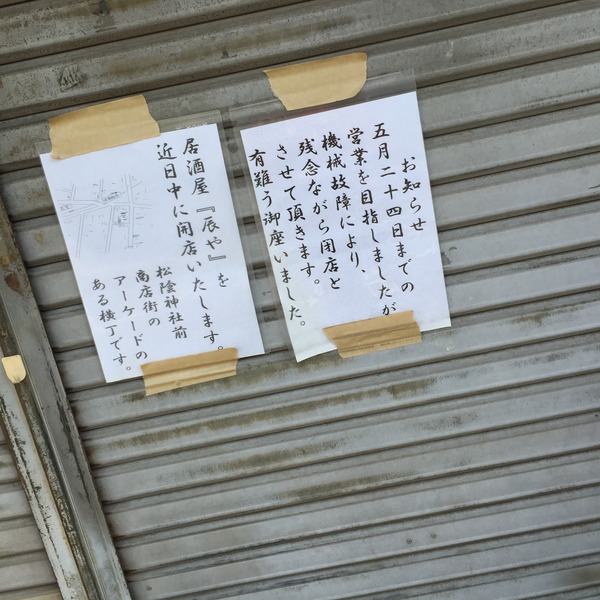 お知らせ
五月二十四日までの
営業を目指しましたが
機械故障により、
残念ながら閉店と
させて頂きます。
有難う御座いました。
居酒屋『辰や』を
近日中に開店いたします。
松陰神社前
商店街の
アーケードの
ある横丁です。